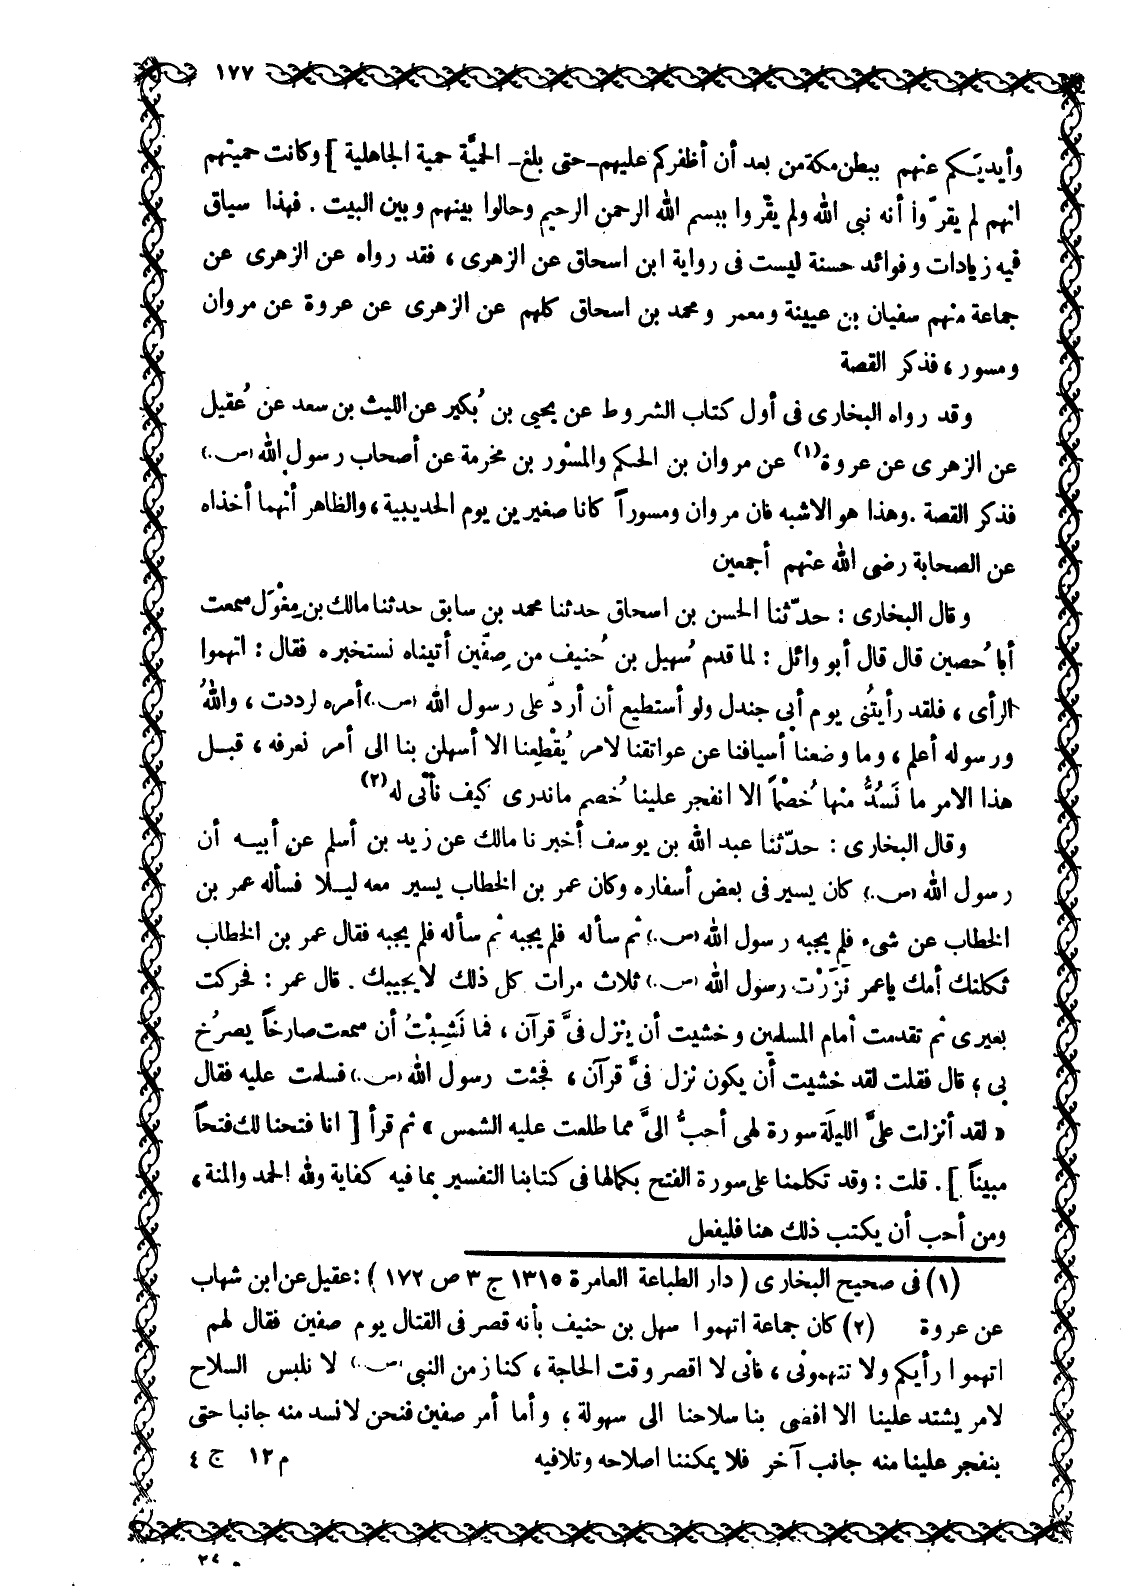 ١٧٧
وأيديَـكم عنهم ببطن مكة من بعد أن أظفركم عليهم ـ حتى بلغ ـ الحميَّة حمية الجاهلية ] وكانت حميتهم
انهم لم يقرّوا أنه نبى الله ولم يقّروا ببسم الله الرحمن الرحيم وحالوا بينهم وبين البيت . فهذا سياق
فيه زيادات وفوائد حسنة ليست فى رواية ابن اسحاق عن الزهرى ، فقد رواه عن الزهرى عن
جماعة منهم سفيان بن عيينة ومعمر ومحمد بن اسحاق كلهم عن الزهرى عن عروة عن مروان
ومسور ، فذكر القصة
وقد رواه البخارى فى أول كتاب الشروط عن يحيى بن بُكير عن الليث بن سعد عن عُقيل
عن الزهرى عن عروة (١) عن مروان بن الحكم والمسْور بن مخرمة عن أصحاب رسول الله (ص.)
فذكر القصة . وهذا هو الاشبه فان مروان ومسوراً كانا صغيرين يوم الحديبية ، والظاهر أنهما أخذاه
عن الصحابة رضى الله عنهم أجمعين
وقال البخارى : حدّثنا الحسن بن اسحاق حدثنا محمد بن سابق حدثنا مالك بن مِغْوَل سمعت
أبا حُصين قال قال أبو وائل : لما قدم سُهيل بن حُنيف من صِفّين أتيناه نستخبره فقال : اتهموا
الرأى ، فلقد رأيتُنى يوم أبى جندل ولو أستطيع أن أردّ على رسول الله (ص.) أمره لرددت ، واللهُ
ورسوله أعلم ، وما وضعنا أسيافنا عن عواتقنا لامر يُقْطِعنا الا أسهلن بنا الى أمر نعرفه ، قبــل
هذا الامر ما نَسُدُّ منها خُصْماً الا انفجر علينا خُصم ماندرى كيف نأتى له (٢)
وقال البخارى : حدّثنا عبد الله بن يوسف أخبرنا مالك عن زيد بن أسلم عن أبيــه أن
رسول الله (ص.) كان يسير فى بعض أسفاره وكان عمر بن الخطاب يسير معه ليــلا فسأله عمر بن
الخطاب عن شىء فلم يجبه رسول الله (ص.) ثم سأله فلم يجبه ثم سأله فلم يجبه فقال عمر بن الخطاب
ثكلتك أمك ياعمر نَزَرْت رسول الله (ص.) ثلاث مرات كل ذلك لايجيبك . قال عمر : فحركت
بعيرى ثم تقدمت أمام المسلمين وخشيت أن ينزل فىَّ قرآن ، فما نَشِبْتُ أن سمعت صارخاً يصرُخ
بى ، قال فقلت لقد خشيت أن يكون نزل فىَّ قرآن ، فجئت رسول الله (ص.) فسلمت عليه فقال
« لقد أنزلت علىَّ الليلَة سورة لهى أحبُّ الىَّ مما طلعت عليه الشمس » ثم قرأ [ انا فتحنا لك فتحاً
مبيناً ] . قلت : وقد تكلمنا على سورة الفتح بكمالها فى كتابنا التفسير بما فيه كفاية ولله الحمد والمنة ،
ومن أحب أن يكتب ذلك هنا فليفعل
(١) فى صحيح البخارى ( دار الطباعة العامرة ١٣١٥ ج ٣ ص ١٧٢ ) : عقيل عن ابن شهاب
عن عروة (٢) كان جماعة اتهموا سهل بن حنيف بأنه قصر فى القتال يوم صفين فقال لهم
اتهموا رأيكم ولا تتهمونى ، فانى لا اقصر وقت الحاجة ، كنا زمن النبى (ص.) لا نلبس السلاح
لامر يشتد علينا الا افضى بنا سلاحنا الى سهولة ، وأما أمر صفين فنحن لا نسد منه جانبا حتى
ينفجر علينا منه جانب آخر فلا يمكننا اصلاحه وتلافيه م ١٢ ج ٤